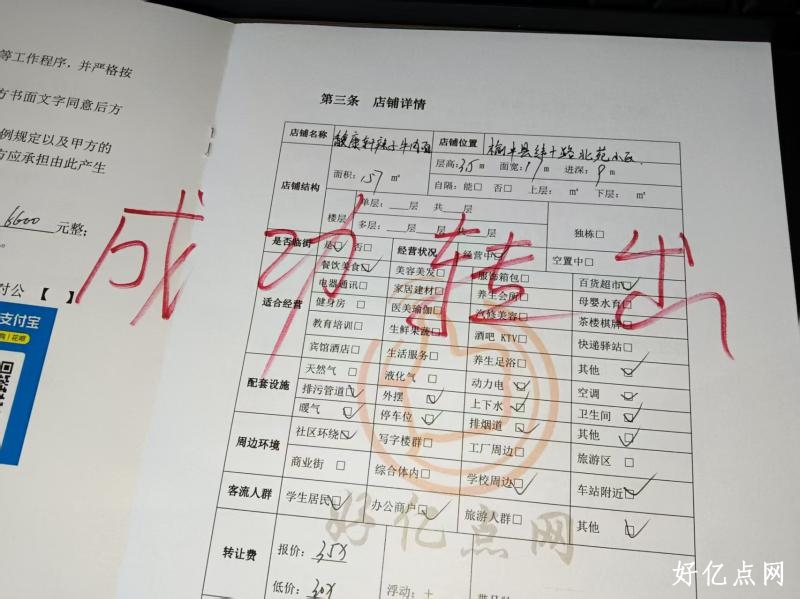 等工作程序，并严格按
方书面文字同意后方
例规定以及甲方的
方应承担由此产生
6600 元整；
。
对公 【 】
支付宝
花呗
成功转出
第三条 店铺详情
店铺名称 牛肉面 店铺位置 榆中县纬十路北苑小区
店铺结构 面积：157 ㎡ 层高：3.5 m 面宽：17 m 进深：9 m
自隔：能□ 否□ 上层： ㎡ 下层： ㎡
楼层 单层： 层 共 层 独栋□
多层： 层 共 层
是否临街 是☑ 否□ 经营状况 经营中☑ 空置中□
适合经营 餐饮美食☑ 美容美发□ 服饰箱包□ 百货超市☑
电器通讯□ 家居建材□ 养生会所□ 母婴水育□
健身房 □ 医美瑜伽□ 汽修美容□ 茶楼棋牌□
教育培训□ 生鲜果蔬□ 酒吧 KTV□ 快递驿站□
宾馆酒店□ 生活服务□ 养生足浴□ 其他 ☑
配套设施 天然气 □ 液化气 □ 动力电 ☑ 空调 ☑
排污管道☑ 外摆 ☑ 上下水 ☑ 卫生间 ☑
暖气 ☑ 停车位 ☑ 排烟道 ☑ 其他 ☑
周边环境 社区环绕☑ 写字楼群□ 工厂周边□ 旅游区 □
商业街 □ 综合体内□ 学校周边☑ 车站附近☑
客流人群 学生居民☑ 办公商户☑ 旅游人群□ 其他 ☑
转让费 报价：35X
低价：30X 浮动：±
好亿点网
好亿点网